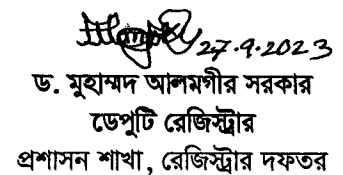 27.9.2023
ড. মুহাম্মদ আলমগীর সরকার
ডেপুটি রেজিস্ট্রার
প্রশাসন শাখা, রেজিস্ট্রার দফতর